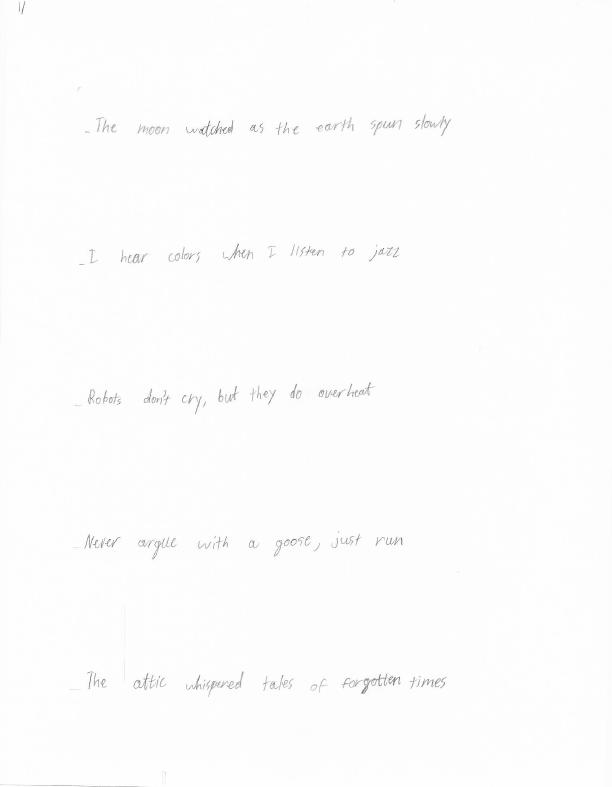 11
- The moon watched as the earth spun slowly
- I hear colors when I listen to jazz
- Robots don't cry, but they do overheat
- Never argue with a goose, just run
- The attic whispered tales of forgotten times